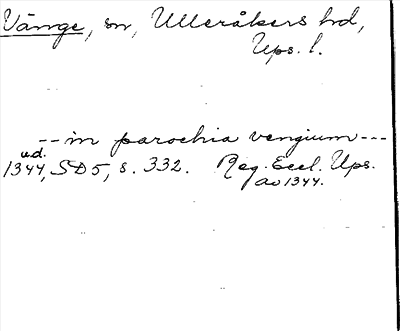 Vänge, sn, Ulleråkers hd,
Ups. l.
-- in parochia vengium ---
u.d.
1344, SD 5, s. 332. Reg. Eccl. Ups.
av 1344.